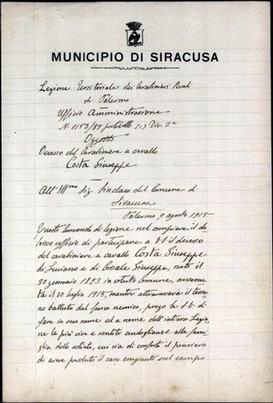 MUNICIPIO DI SIRACUSA
Legione Territoriale dei Carabinieri Reali
di Palermo
Ufficio Amministrazione
N. 1153/84
Oggetto
Decesso del Carabiniere a cavallo
Costa Giuseppe
All'Ill.mo Sig. Sindaco del Comune di
Siracusa
Palermo 9 agosto 1915
Questo Comando di legione nel compiere il do
loroso ufficio di partecipare a S.V. il decesso
del carabiniere a cavallo Costa Giuseppe
di Luciano e di Giuseppa, nato il
30 gennaio 1893 in cotesto Comune, avvenu
ta il 30 luglio 1915, mentre attraversava il terre
no battuto dal fuoco nemico, prega la S.V. di
fare in suo nome ed a nome dell'intera Legio
ne le più vive e sentite condoglianze alla fami
glia dell'estinto, cui sia di conforto il pensiero
di aver perduto il caro congiunto sul campo